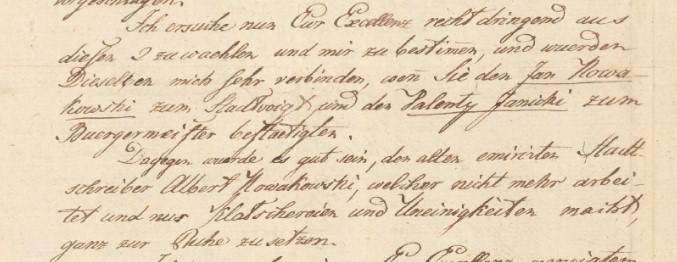 vorgeschlagen.
Ich ersuche nun Eur Excellenz recht dringend aus
diesen 2 zu waehlen und mir zu bestimen, und wuerden
Dieselben mich sehr verbinden, wen Sie den Jan Nowa-
kowski zum Stadtvoigt, und den Valenty Janicki zum
Buergermeister bestaetigten.
Dagegen wuerde es gut sein, den alten emirirten Stadt-
schreiber Albert Nowakowski, welcher nicht mehr arbei-
tet und nur Klatschereien und Uneinigkeiten macht,
ganz zur Ruhe zu setzen.
Excellenz